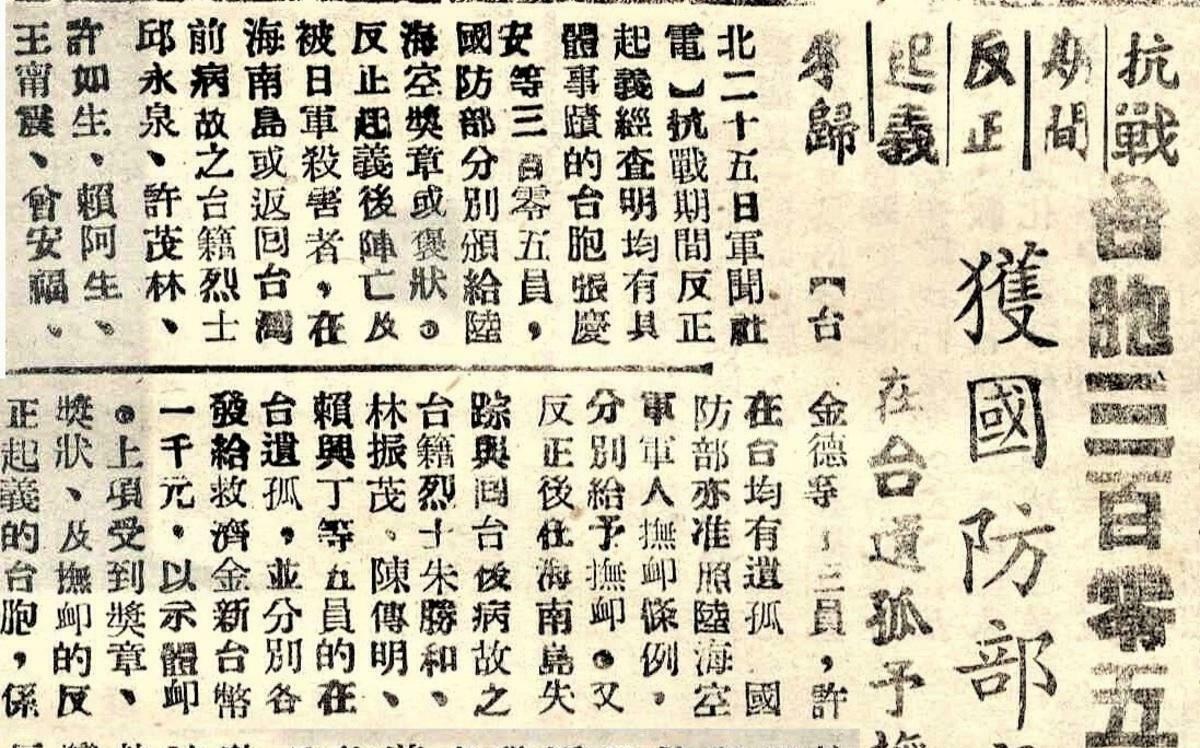 抗戰
期間
反正
起義
歸
台胞三百零五
獲國防部
在台遺孤予
【台
北二十五日軍聞社
電】抗戰期間反正
起義經查明均有具
體事蹟的台胞張慶
安等三百零五員，
國防部分別頒給陸
海空獎章或褒狀。
反正起義後陣亡及
被日軍殺害者，在
海南島或返回台灣
前病故之台籍烈士
邱永泉、許茂林、
許如生、賴阿生、
王甯震、曾安福、
金德等三員，許
在台均有遺孤 國
防部亦准照陸海空
軍軍人撫卹條例，
分別給予撫卹。又
反正後在海南島失
踪與回台後病故之
台籍烈士朱勝和、
林振茂、陳傳明、
賴興丁等五員的在
台遺孤，並分別各
發給救濟金新台幣
一千元，以示體卹
。上項受到獎章、
獎狀、及撫卹的反
正起義的台胞，係